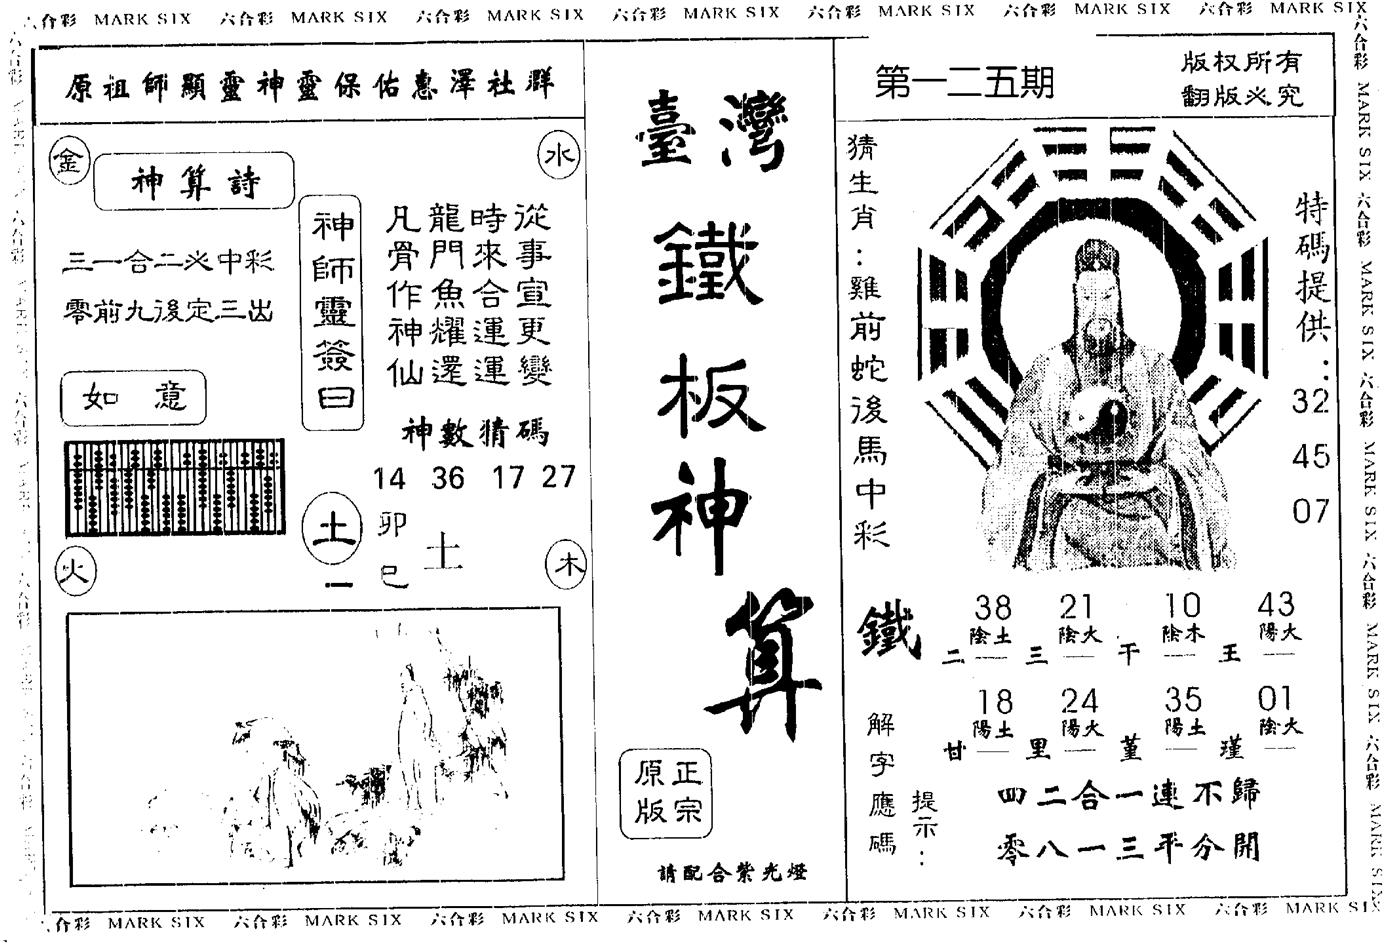 六合彩 MARK SIX 六合彩 MARK SIX 六合彩 MARK SIX 六合彩 MARK SIX 六合彩 MARK SIX 六合彩 MARK SIX 六合彩 MARK SIX
原祖師顯靈神靈保佑惠澤社群
金
水
神算詩
三一合二必中彩
零前九後定三出
如意
神師靈簽曰
從事宣更變
時來合運運
龍門魚耀還
凡骨作神仙
神數猜碼
14 36 17 27
土
一
卯
巳
土
火
木
臺灣
鐵
板
神
算
正宗
原版
請配合紫光燈
第一二五期
版权所有
翻版必究
猜生肖:雞前蛇後馬中彩
特碼提供:
32
45
07
鐵
38 21 10 43
陰土 陰火 陰木 陽火
二 三 干 王
18 24 35 01
陽土 陽火 陽土 陰火
甘 里 堇 瑾
解字應碼
提示:
四二合一連不歸
零八一三平分開
六合彩 MARK SIX 六合彩 MARK SIX 六合彩 MARK SIX 六合彩 MARK SIX 六合彩 MARK SIX 六合彩 MARK SIX 六合彩 MARK SIX
六合彩 MARK SIX 六合彩 MARK SIX 六合彩 MARK SIX 六合彩 MARK SIX 六合彩 MARK SIX